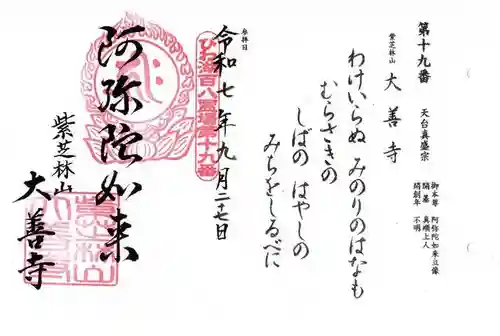 第十九番
天台真盛宗
紫芝林山 大善寺
御本尊 阿弥陀如来立像
開基 真順上人
開創年 不明
わけいらぬ みのりのはなも
むらさきの
しばの はやしの
みちをしるべに
参拝日
令和七年九月二十七日
びわ湖百八霊場第十九番
阿弥陀如来
紫芝林山
大善寺